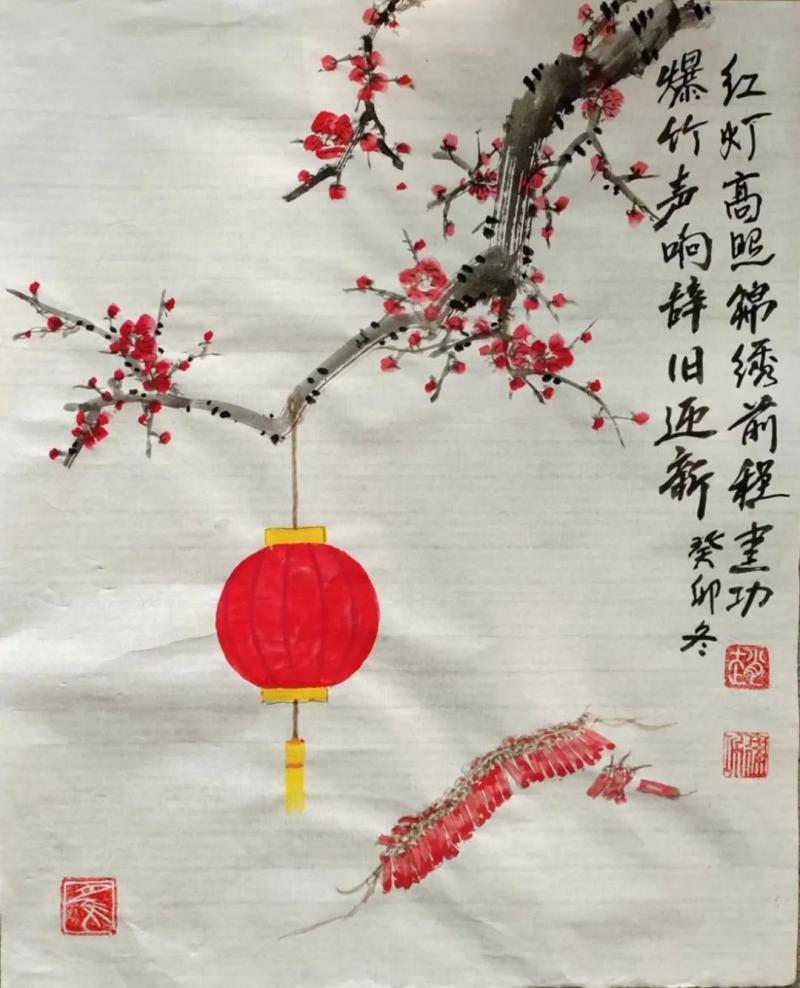 红灯高照锦绣前程建功
爆竹声响辞旧迎新
癸卯冬